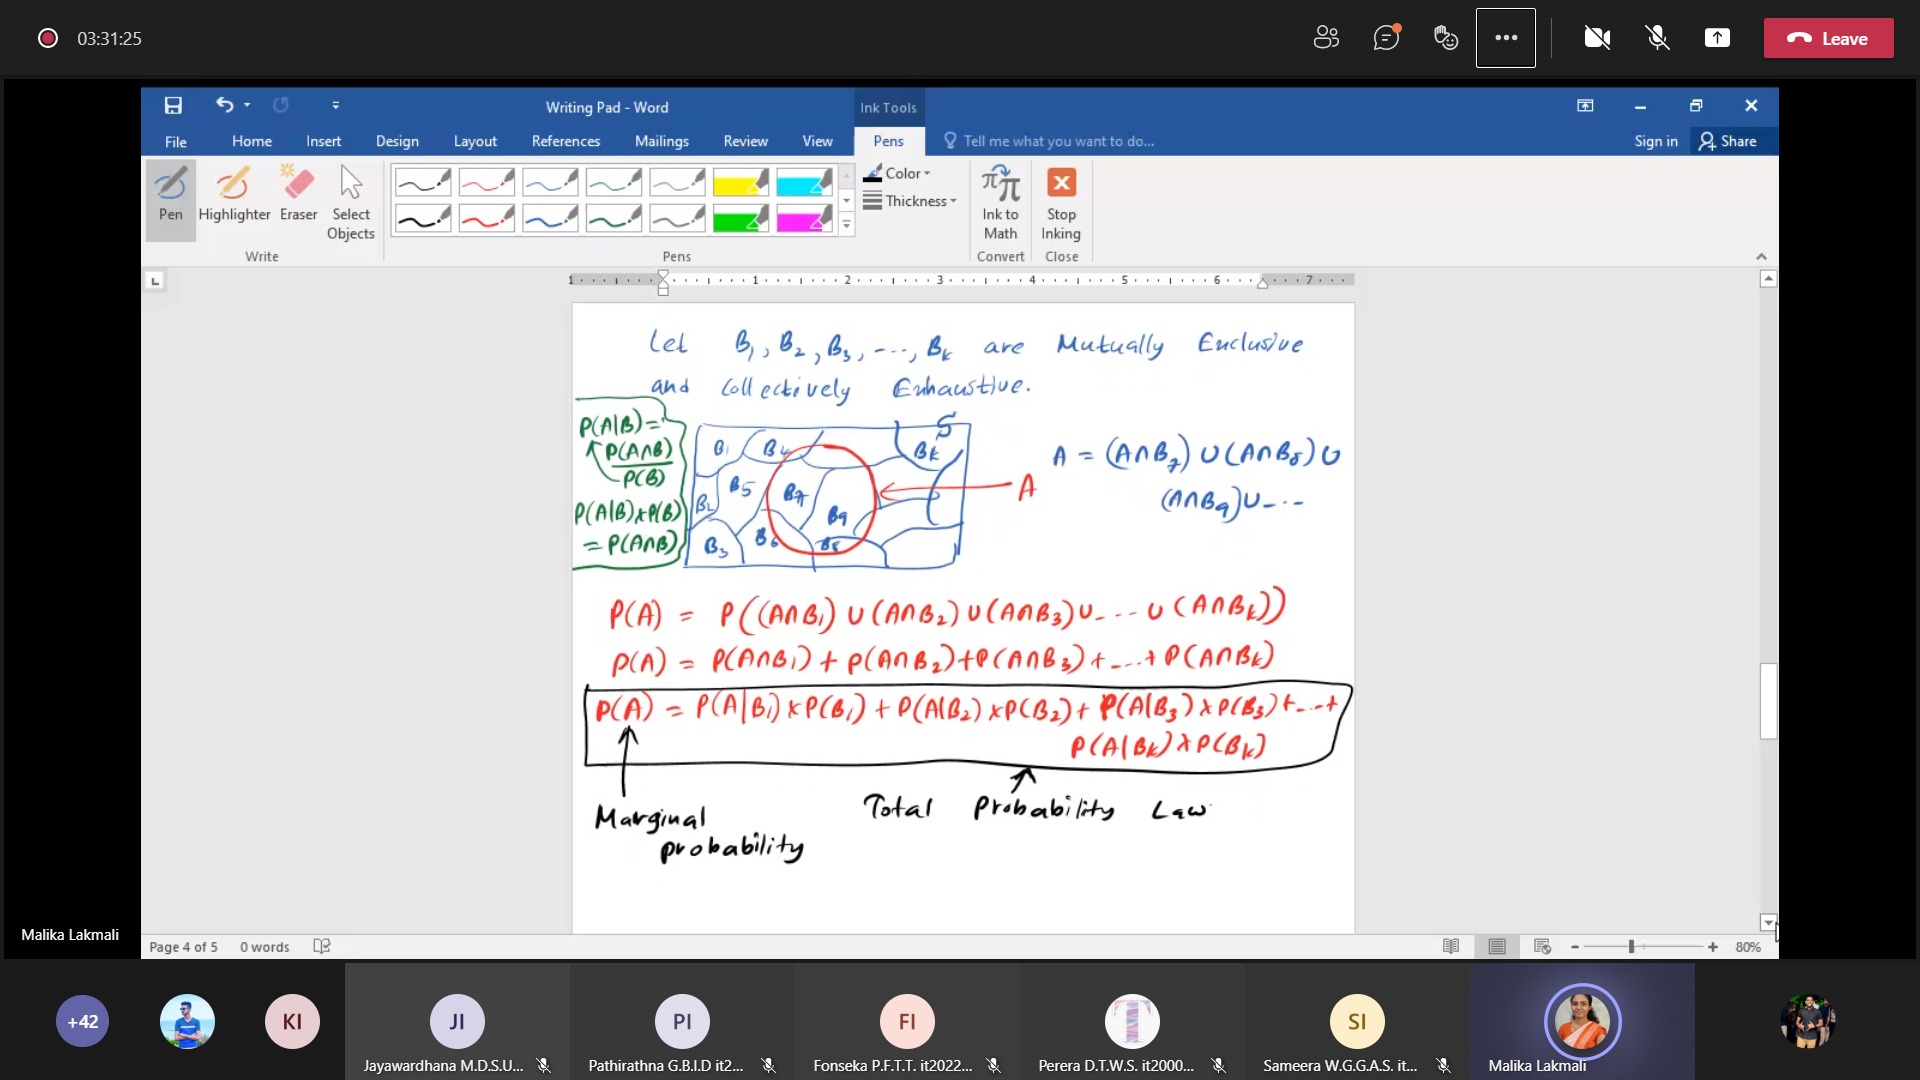 03:31:25
Leave
Writing Pad - Word
Ink Tools
File Home Insert Design Layout References Mailings Review View Pens Tell me what you want to do... Sign in Share
Pen
Highlighter
Eraser
Select Objects
Color
Thickness
Ink to Math
Stop Inking
Write Pens Convert Close
L
1 1 2 3 4 5 6 7
Let B₁, B₂, B₃, ---, Bk are Mutually Exclusive
and Collectively Exhaustive.
P(A|B) =
P(A∩B)
P(B)
P(A|B)×P(B)
= P(A∩B)
S
B₁ B₄ Bk
B₂ B₅ B₇ B₉
B₃ B₆ B₈
A
A = (A∩B₇) ∪ (A∩B₈) ∪
(A∩B₉) ∪ ----
P(A) = P((A∩B₁) ∪ (A∩B₂) ∪ (A∩B₃) ∪ ---- ∪ (A∩Bk))
P(A) = P(A∩B₁) + P(A∩B₂) + P(A∩B₃) + ---- + P(A∩Bk)
P(A) = P(A|B₁)×P(B₁) + P(A|B₂)×P(B₂) + P(A|B₃)×P(B₃) + ---- +
P(A|Bk)×P(Bk)
Marginal
probability
Total Probability Law
Malika Lakmali
Page 4 of 5 0 words 80%
+42
KI
JI
PI
FI
T
SI
Jayawardhana M.D.S.U...
Pathirathna G.B.I.D it2...
Fonseka P.F.T.T. it2022...
Perera D.T.W.S. it2000...
Sameera W.G.G.A.S. it...
Malika Lakmali